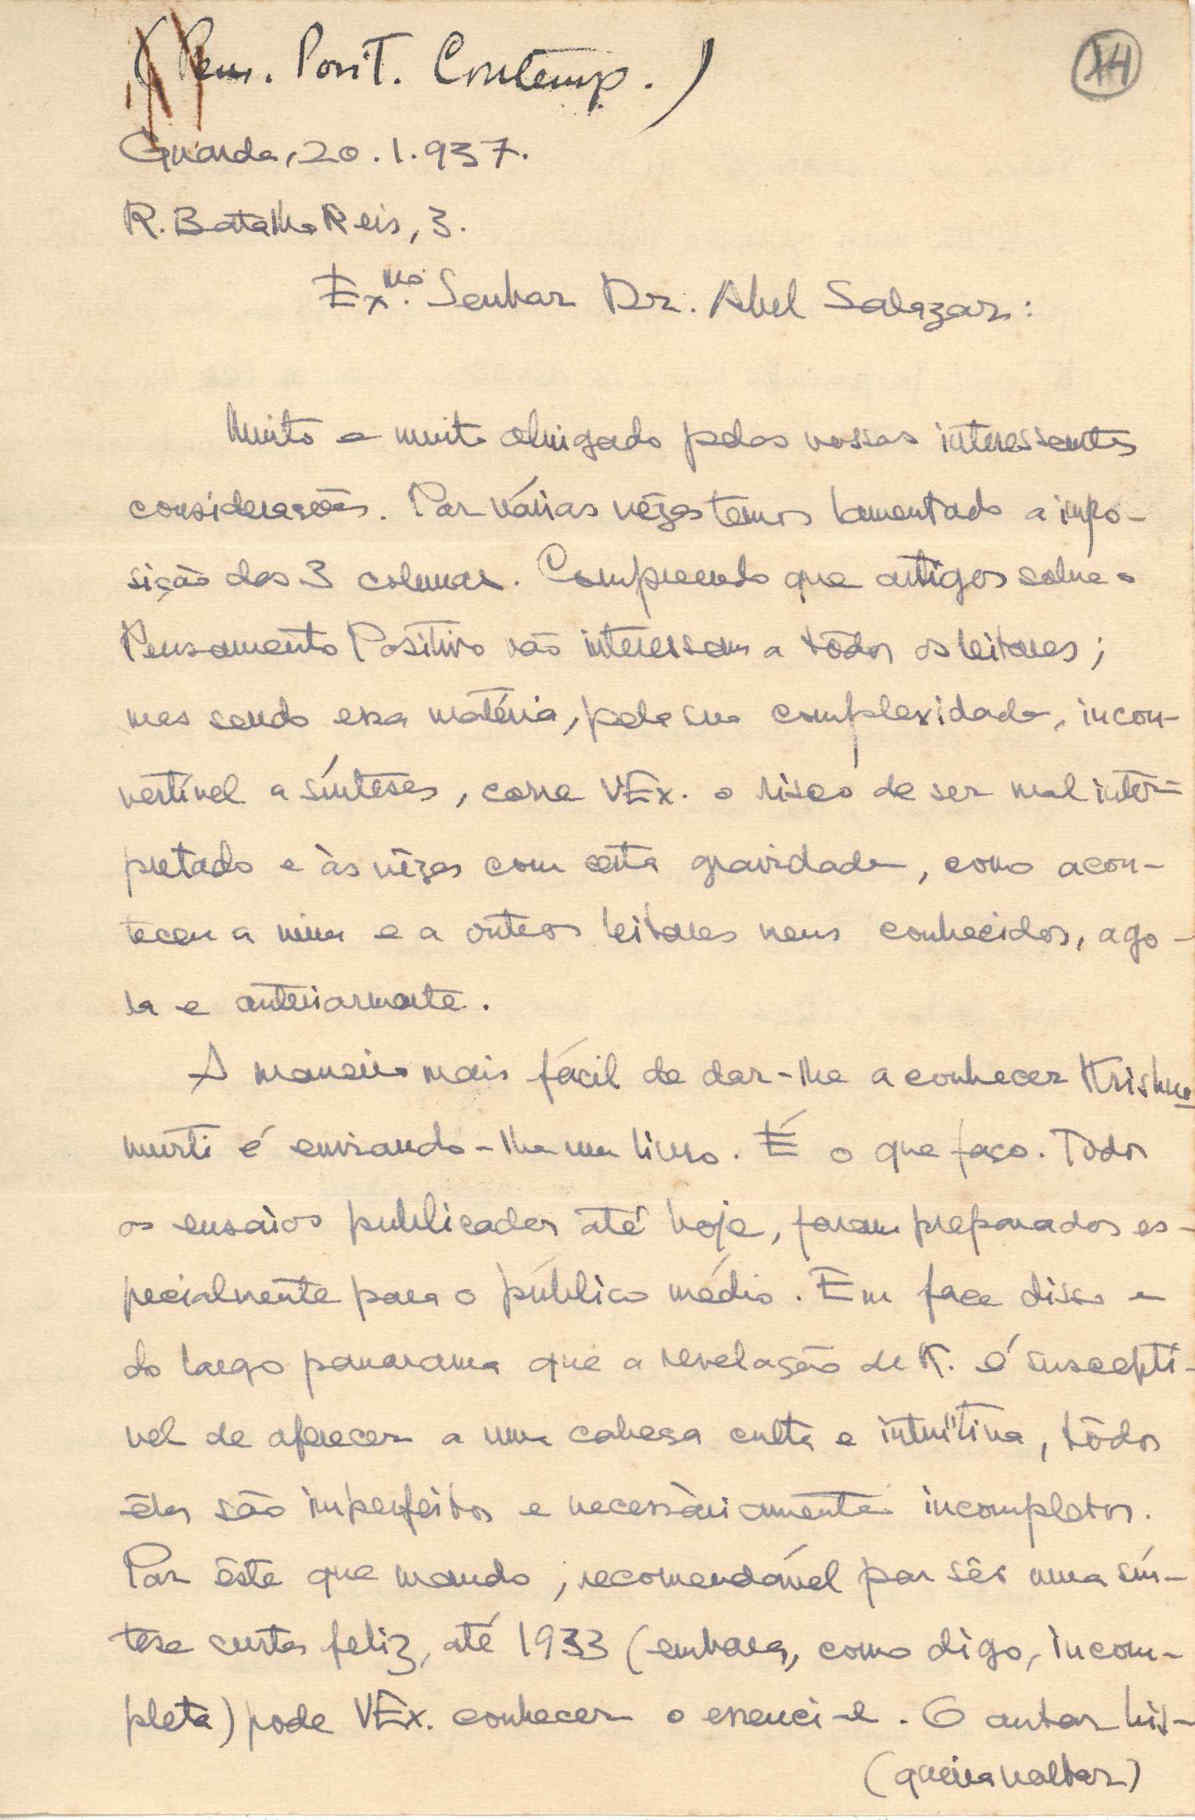 (Pens. Posit. Contemp.)
14
Guarda, 20.1.937.
R. Batalha Reis, 3.
Exmo. Senhor Dr. Abel Salazar:
Muito e muito obrigado pelas vossas interessantes
considerações. Por várias vêzes temos lamentado a impo-
sição das 3 colunas. Compreendo que artigos sobre o
Pensamento Positivo não interessam a tôdos os leitores;
mas sendo essa matéria, pela sua complexidade, incon-
vertível a sínteses, corre VEx. o risco de ser mal inter-
pretado e às vêzes com certa gravidade, como acon-
teceu a mim e a outros leitores meus conhecidos, ago-
ra e anteriormente.
A maneira mais fácil de dar-lhe a conhecer Krishna
murti é enviando-lhe um livro. É o que faço. Todos
os ensaios publicados até hoje, foram preparados es-
pecialmente para o público médio. Em face disso e
do largo panorama que a revelação de K. é susceptí-
vel de oferecer a uma cabeça culta e intuïtiva, tôdos
êles são imperfeitos e necessàriamente incompletos.
Por êste que mando, recomendável por sêr uma sín-
tese curta feliz, até 1933 (embora, como digo, incom-
pleta) pode VEx. conhecer o essencial. O autor his-
(queira voltar)